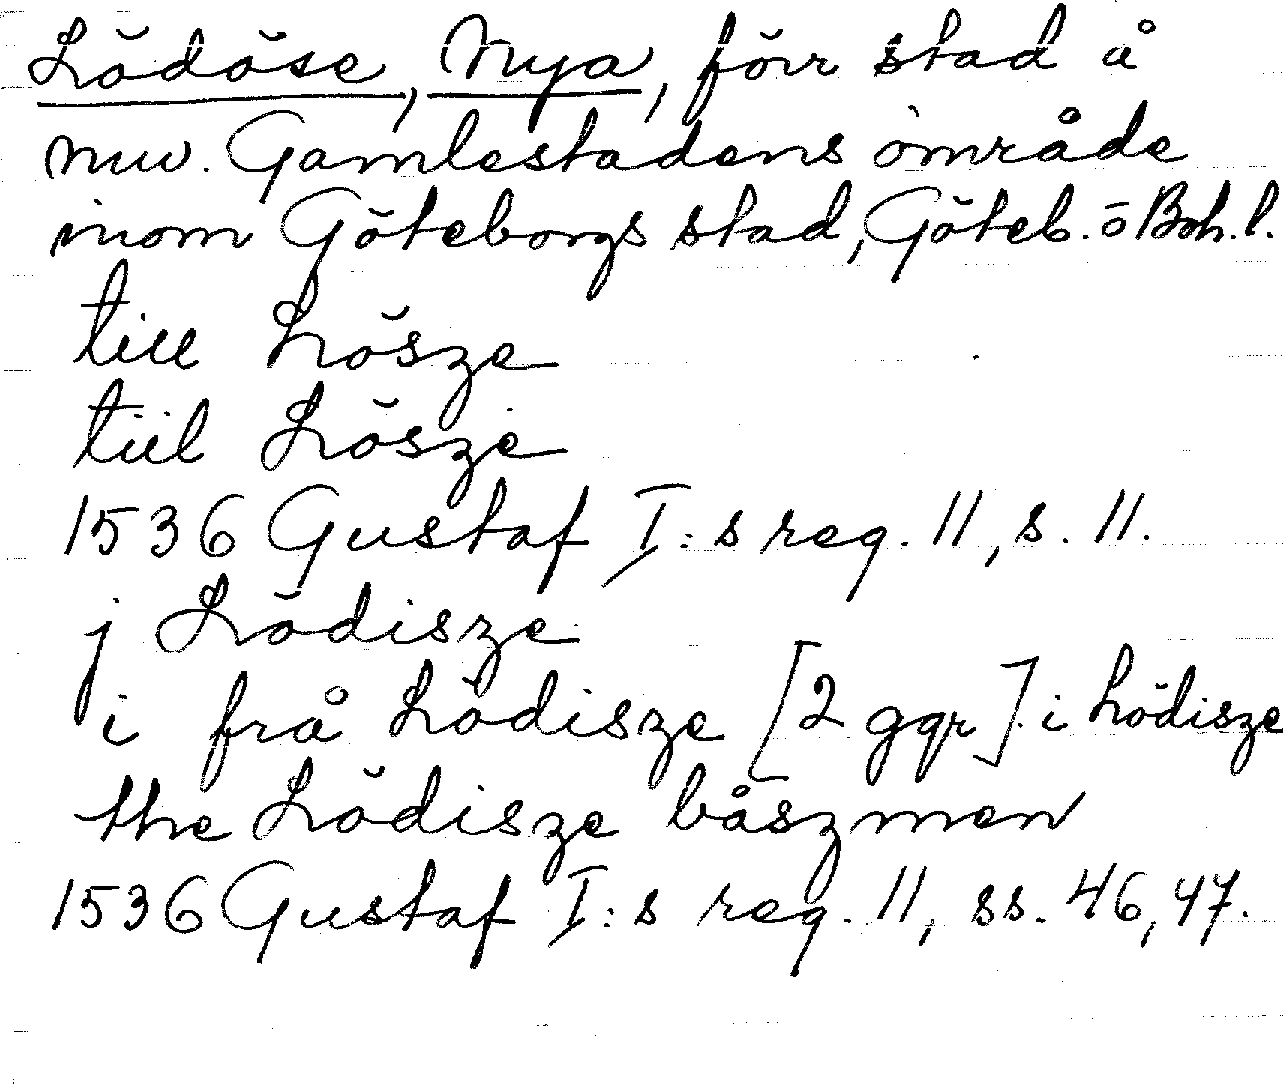 Lödöse, Nya, förr stad å
nuv. Gamlestadens område
inom Göteborgs stad, Göteb. o Boh. l.
till Lösze
tiil Lösze
1536 Gustaf I:s reg. 11, s. 11.
j Lödisze
i frå Lödisze [2 ggr] i Lödisze
the Lödisze båszmen
1536 Gustaf I:s reg. 11, ss. 46, 47.